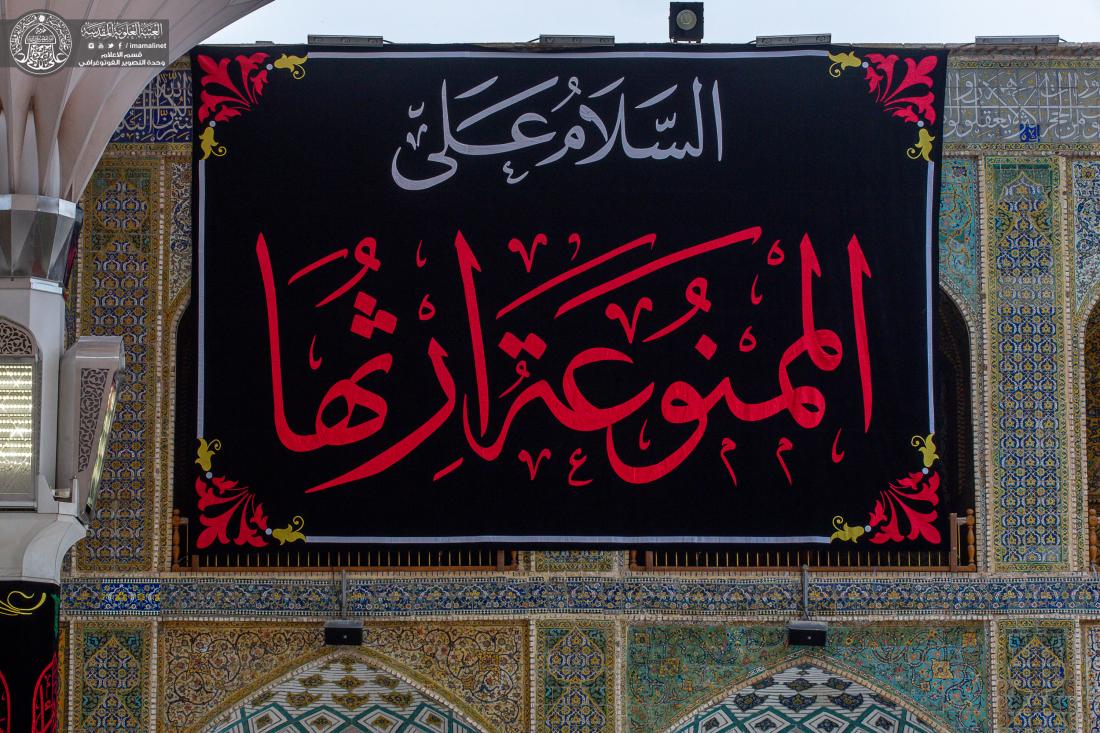 العتبة العلوية المقدسة
/ imamalinet
قسم الإعلام
وحدة التصوير الفوتوغرافي
السَّلَامُ عَلَى
الممنُوعَةُ اِرثُهَا